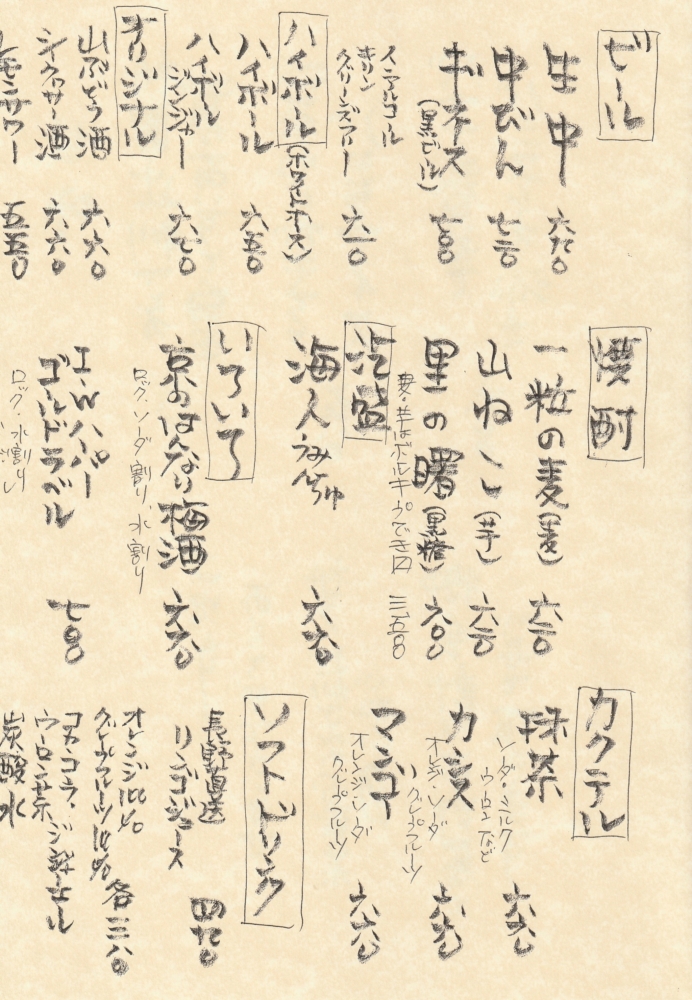 ビール
生中
中びん
ギネス
(黒ビール) 七〇〇
ノンアルコール
キリン
グリーンズフリー
ハイボール(ホワイトホース)
ハイボール 六五〇
ハイボール
ジンジャー 六七〇
オリジナル
山ぶどう酒 六六〇
シークヮーサー酒 六六〇
レモンサワー 五五〇
焼酎
一粒の麦(麦)
山ねこ(芋)
里の曙(黒糖) 六〇〇
麦・芋はボトルキープできます
泡盛
海人うみんちゅ 六六〇
いろいろ
京のはんなり梅酒 六六〇
ロック、ソーダ割り、水割り
I.Wハーパー
ゴールドラベル 七〇〇
ロック、水割り
カクテル
抹茶 六六〇
ソーダ・ミルク
ウーロンなど
カシス 六六〇
オレンジ・ソーダ
グレープフルーツ
マンゴー 六六〇
オレンジ・ソーダ
グレープフルーツ
ソフトドリンク
長野直送
リンゴジュース
オレンジ100%
グレープフルーツ100% 各三八〇
コカ・コーラ・ジンジャーエール
ウーロン茶
炭酸水